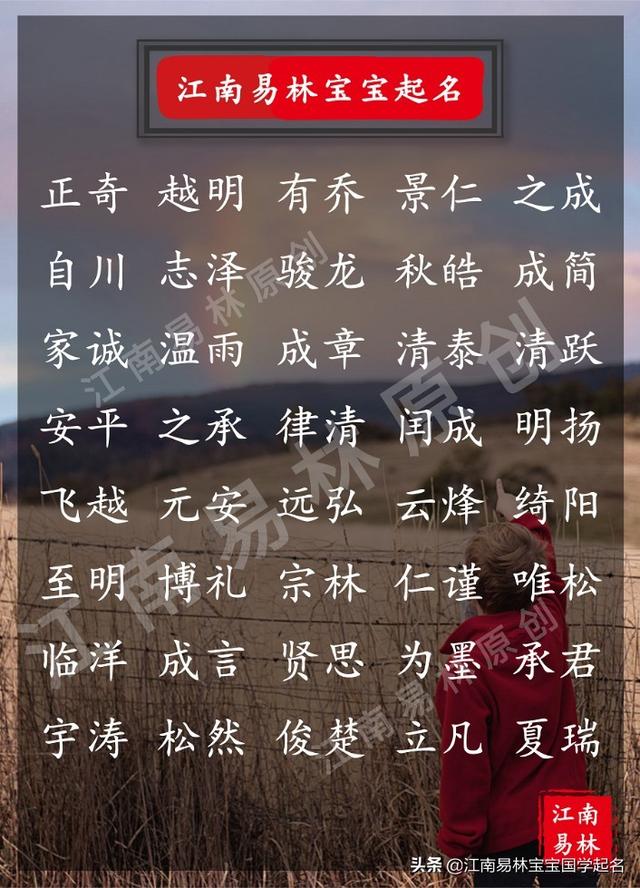 江南易林宝宝起名
正奇 越明 有乔 景仁 之成
自川 志泽 骏龙 秋皓 成简
家诚 温雨 成章 清泰 清跃
安平 之承 律清 闰成 明扬
飞越 元安 远弘 云烽 绮阳
至明 博礼 宗林 仁谨 唯松
临洋 成言 贤思 为墨 承君
宇涛 松然 俊楚 立凡 夏瑞
江南易林原创
江南易林原创
江南易林原创
江南
易林
头条 @江南易林宝宝国学起名